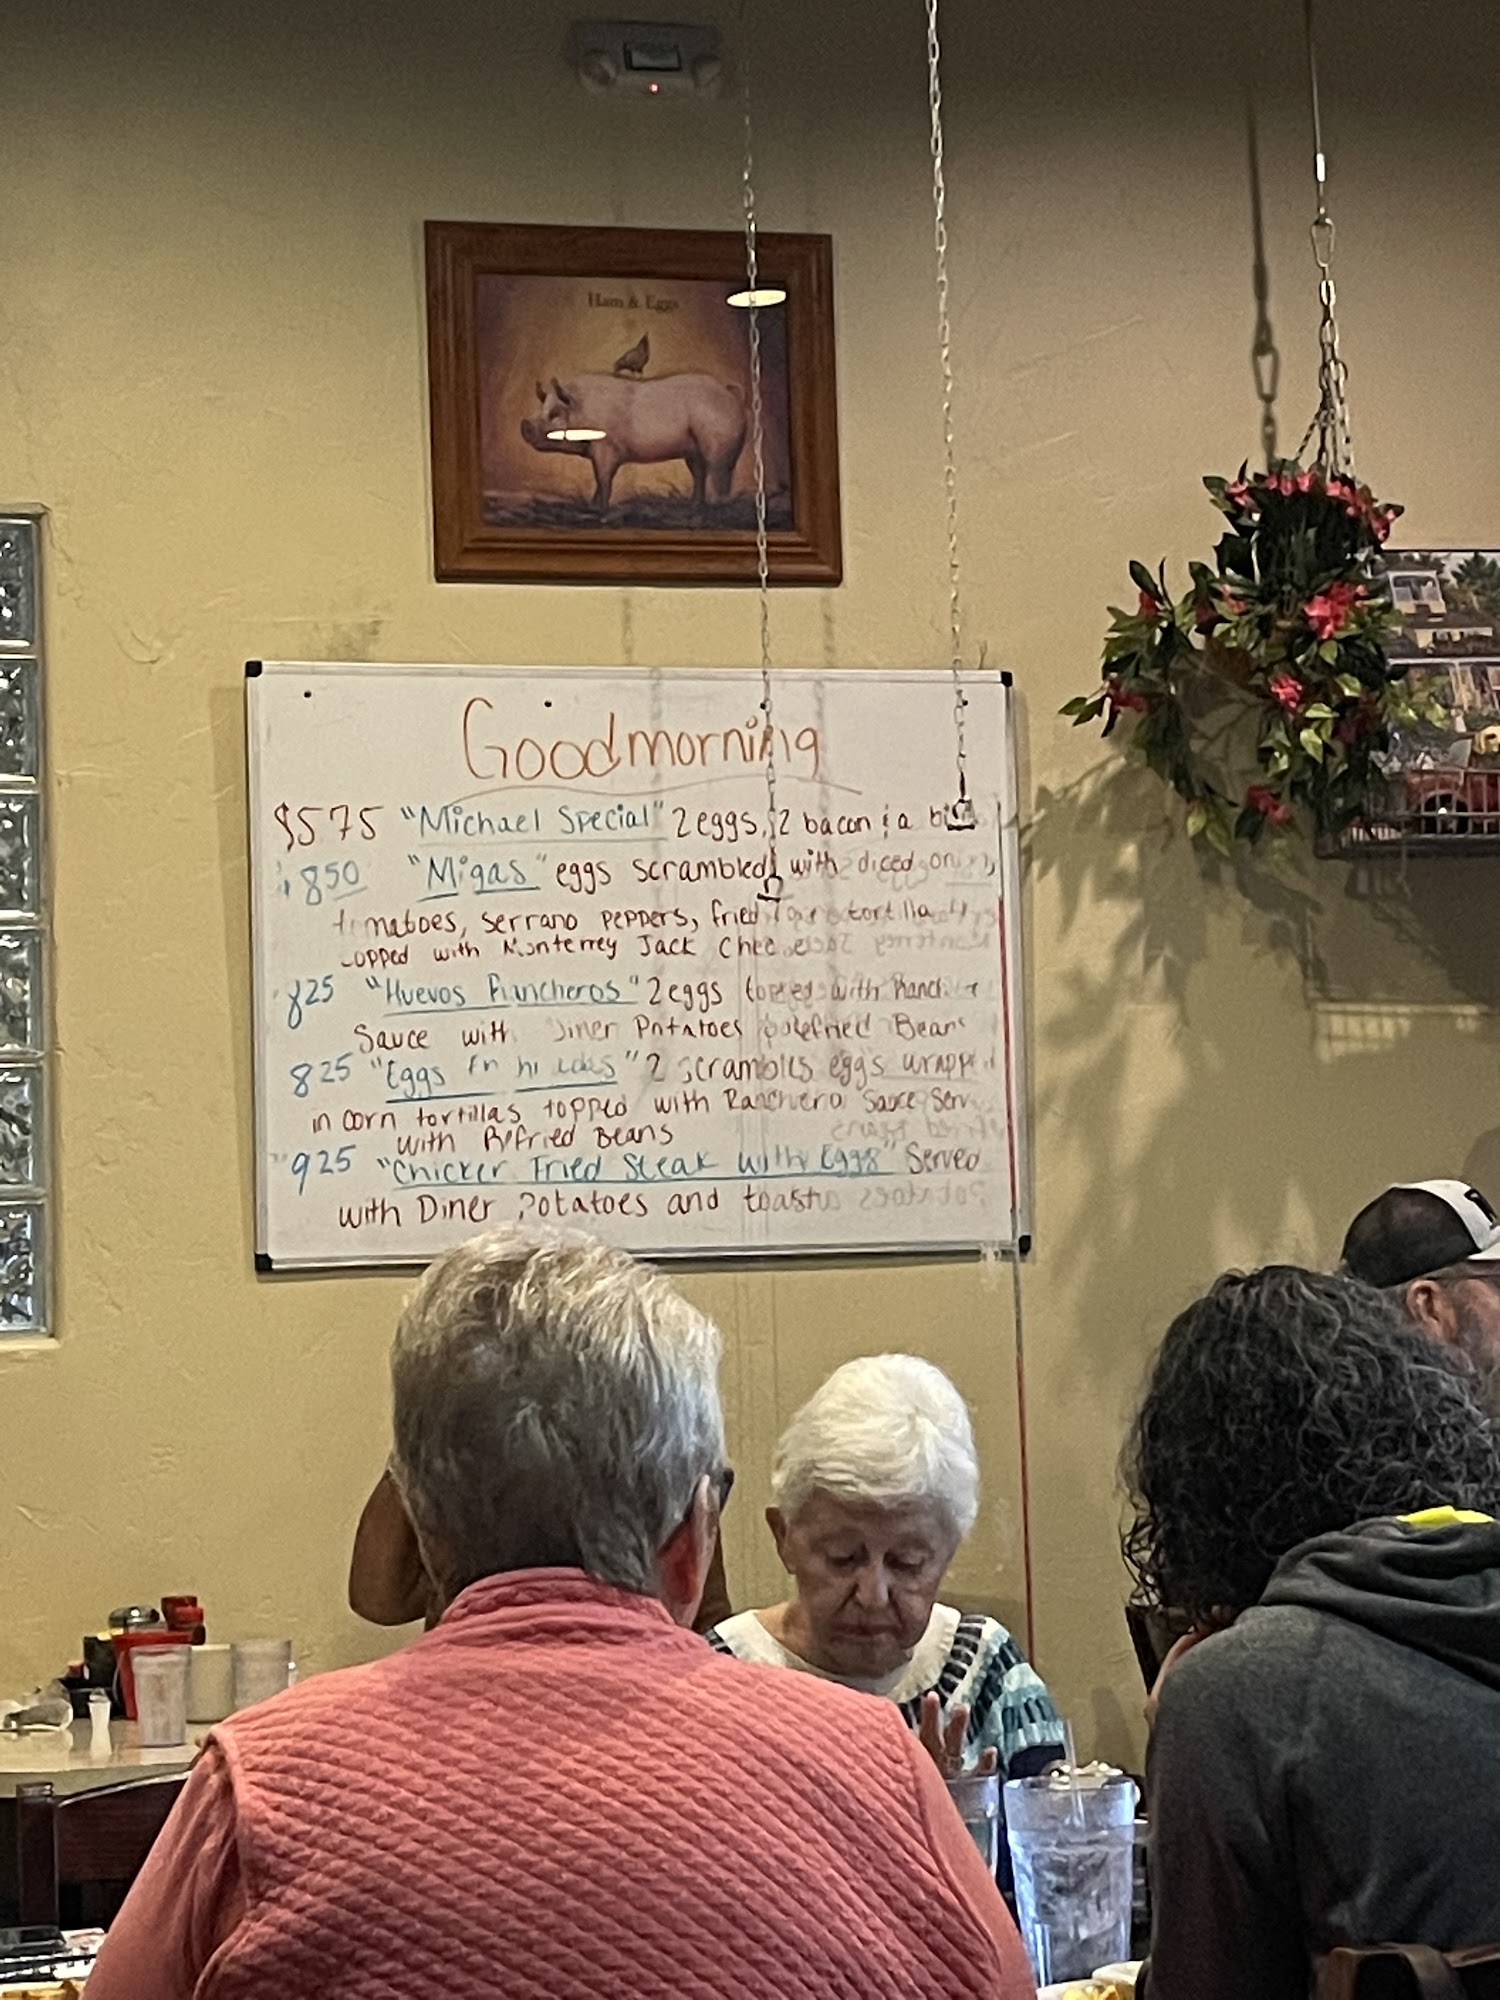 Ham & Eggs
Good morning
$5 75 "Michael Special" 2 eggs, 2 bacon & a
8 50 "Migas" eggs scrambled with diced
tomatoes, serrano peppers, fried tortilla
topped with Monterrey Jack Cheese
8 25 "Huevos Rancheros" 2 eggs topped with
Sauce with Diner Potatoes Refried Beans
8 25 "Eggs En" 2 scrambles eggs wrapped
in corn tortillas topped with Ranchero Sauce
with Refried Beans
9 25 "Chicken Fried Steak with Eggs" Served
with Diner Potatoes and toast